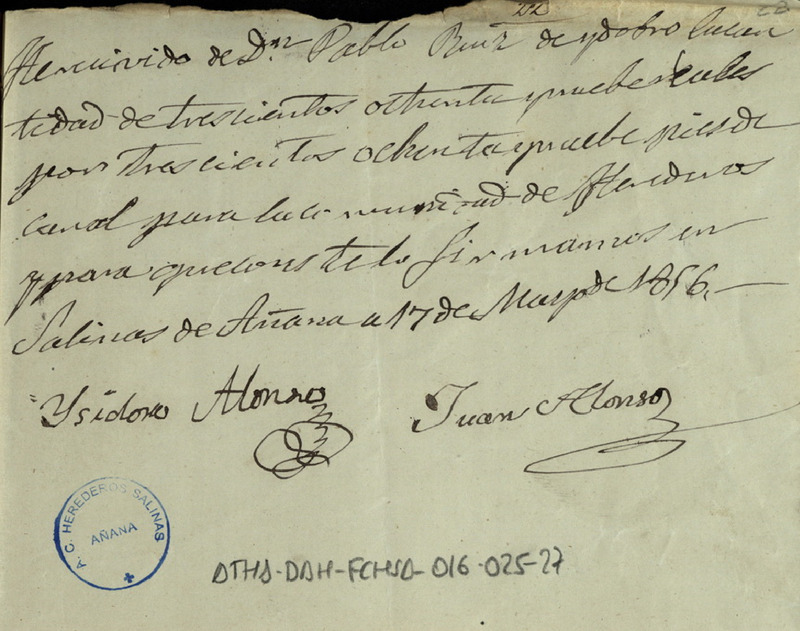 22
28
Herecivido de Dn Pablo Ruiz de ydobro lacan
tidad de trescientos ochenta ynuebe reales
por trescientos ochenta ynuebe pies de
canal para laco munidad de Herederos
y para queconste lo firmamos en
Salinas de Añana a 17 de Mayo de 1856.
Ysidoro Alonso
Juan Alonso
A. C. HEREDEROS SALINAS
AÑANA
ATHA-DAH-FCHSA-016-025-27